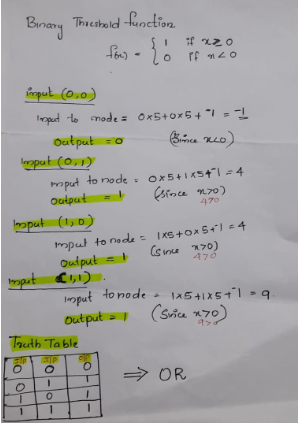 Binary Threshold function
f(x) = { 1 if x ≥ 0
0 if x < 0
input (0,0)
Input to node = 0x5+0x5+ -1 = -1
Output = 0 (Since x<0)
Input (0,1)
input to node = 0x5+1x5+-1 = 4
Output = 1 (Since x>0)
4>0
Input (1,0)
input to node = 1x5+0x5+-1 = 4
Output = 1 (Since x>0)
4>0
Input (1,1).
Input to node = 1x5+1x5+-1 = 9
Output = 1 (Since x>0)
9>0
Truth Table
I/P I/P O/P
0 0 0
0 1 1
1 0 1
1 1 1
⇒ OR